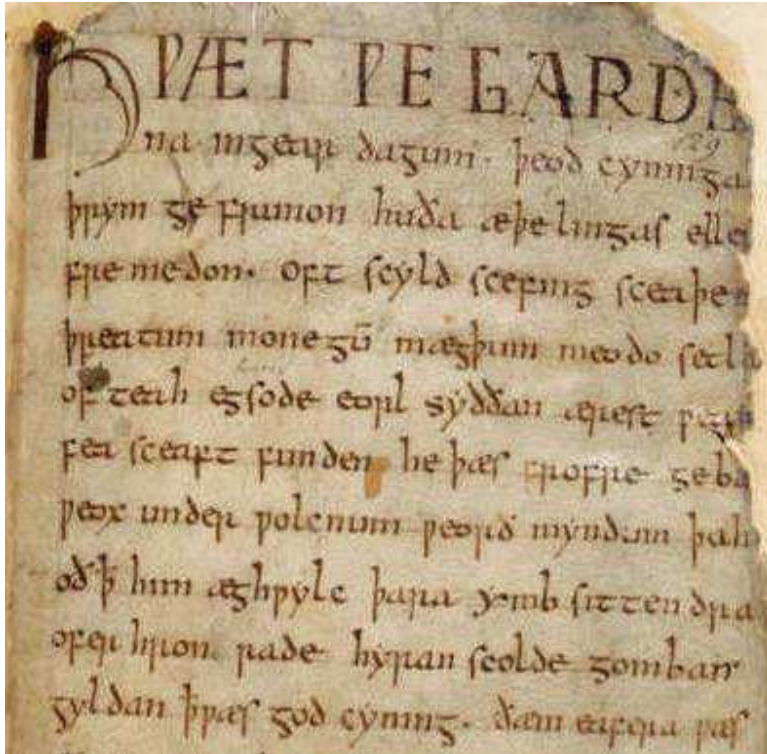 HǷÆT ǷE GARDE
na ingear dagum. þeod cyninga
þrym ge frunon huða æþelingas elle
fremedon. oft scyld scefing sceaþe
þreatum monegū mægþum meodo setla
of teah egsode eorl syððan ærest ƿear
fea sceaft funden he þæs frofre geba
ƿeox under ƿolcnum ƿeorð myndum þah
oð ꝥ him æghƿylc þara ymb sittendra
ofer hron rade hyran scolde gomban
gyldan þƿæs god cyning. ðæm eafera ƿæs